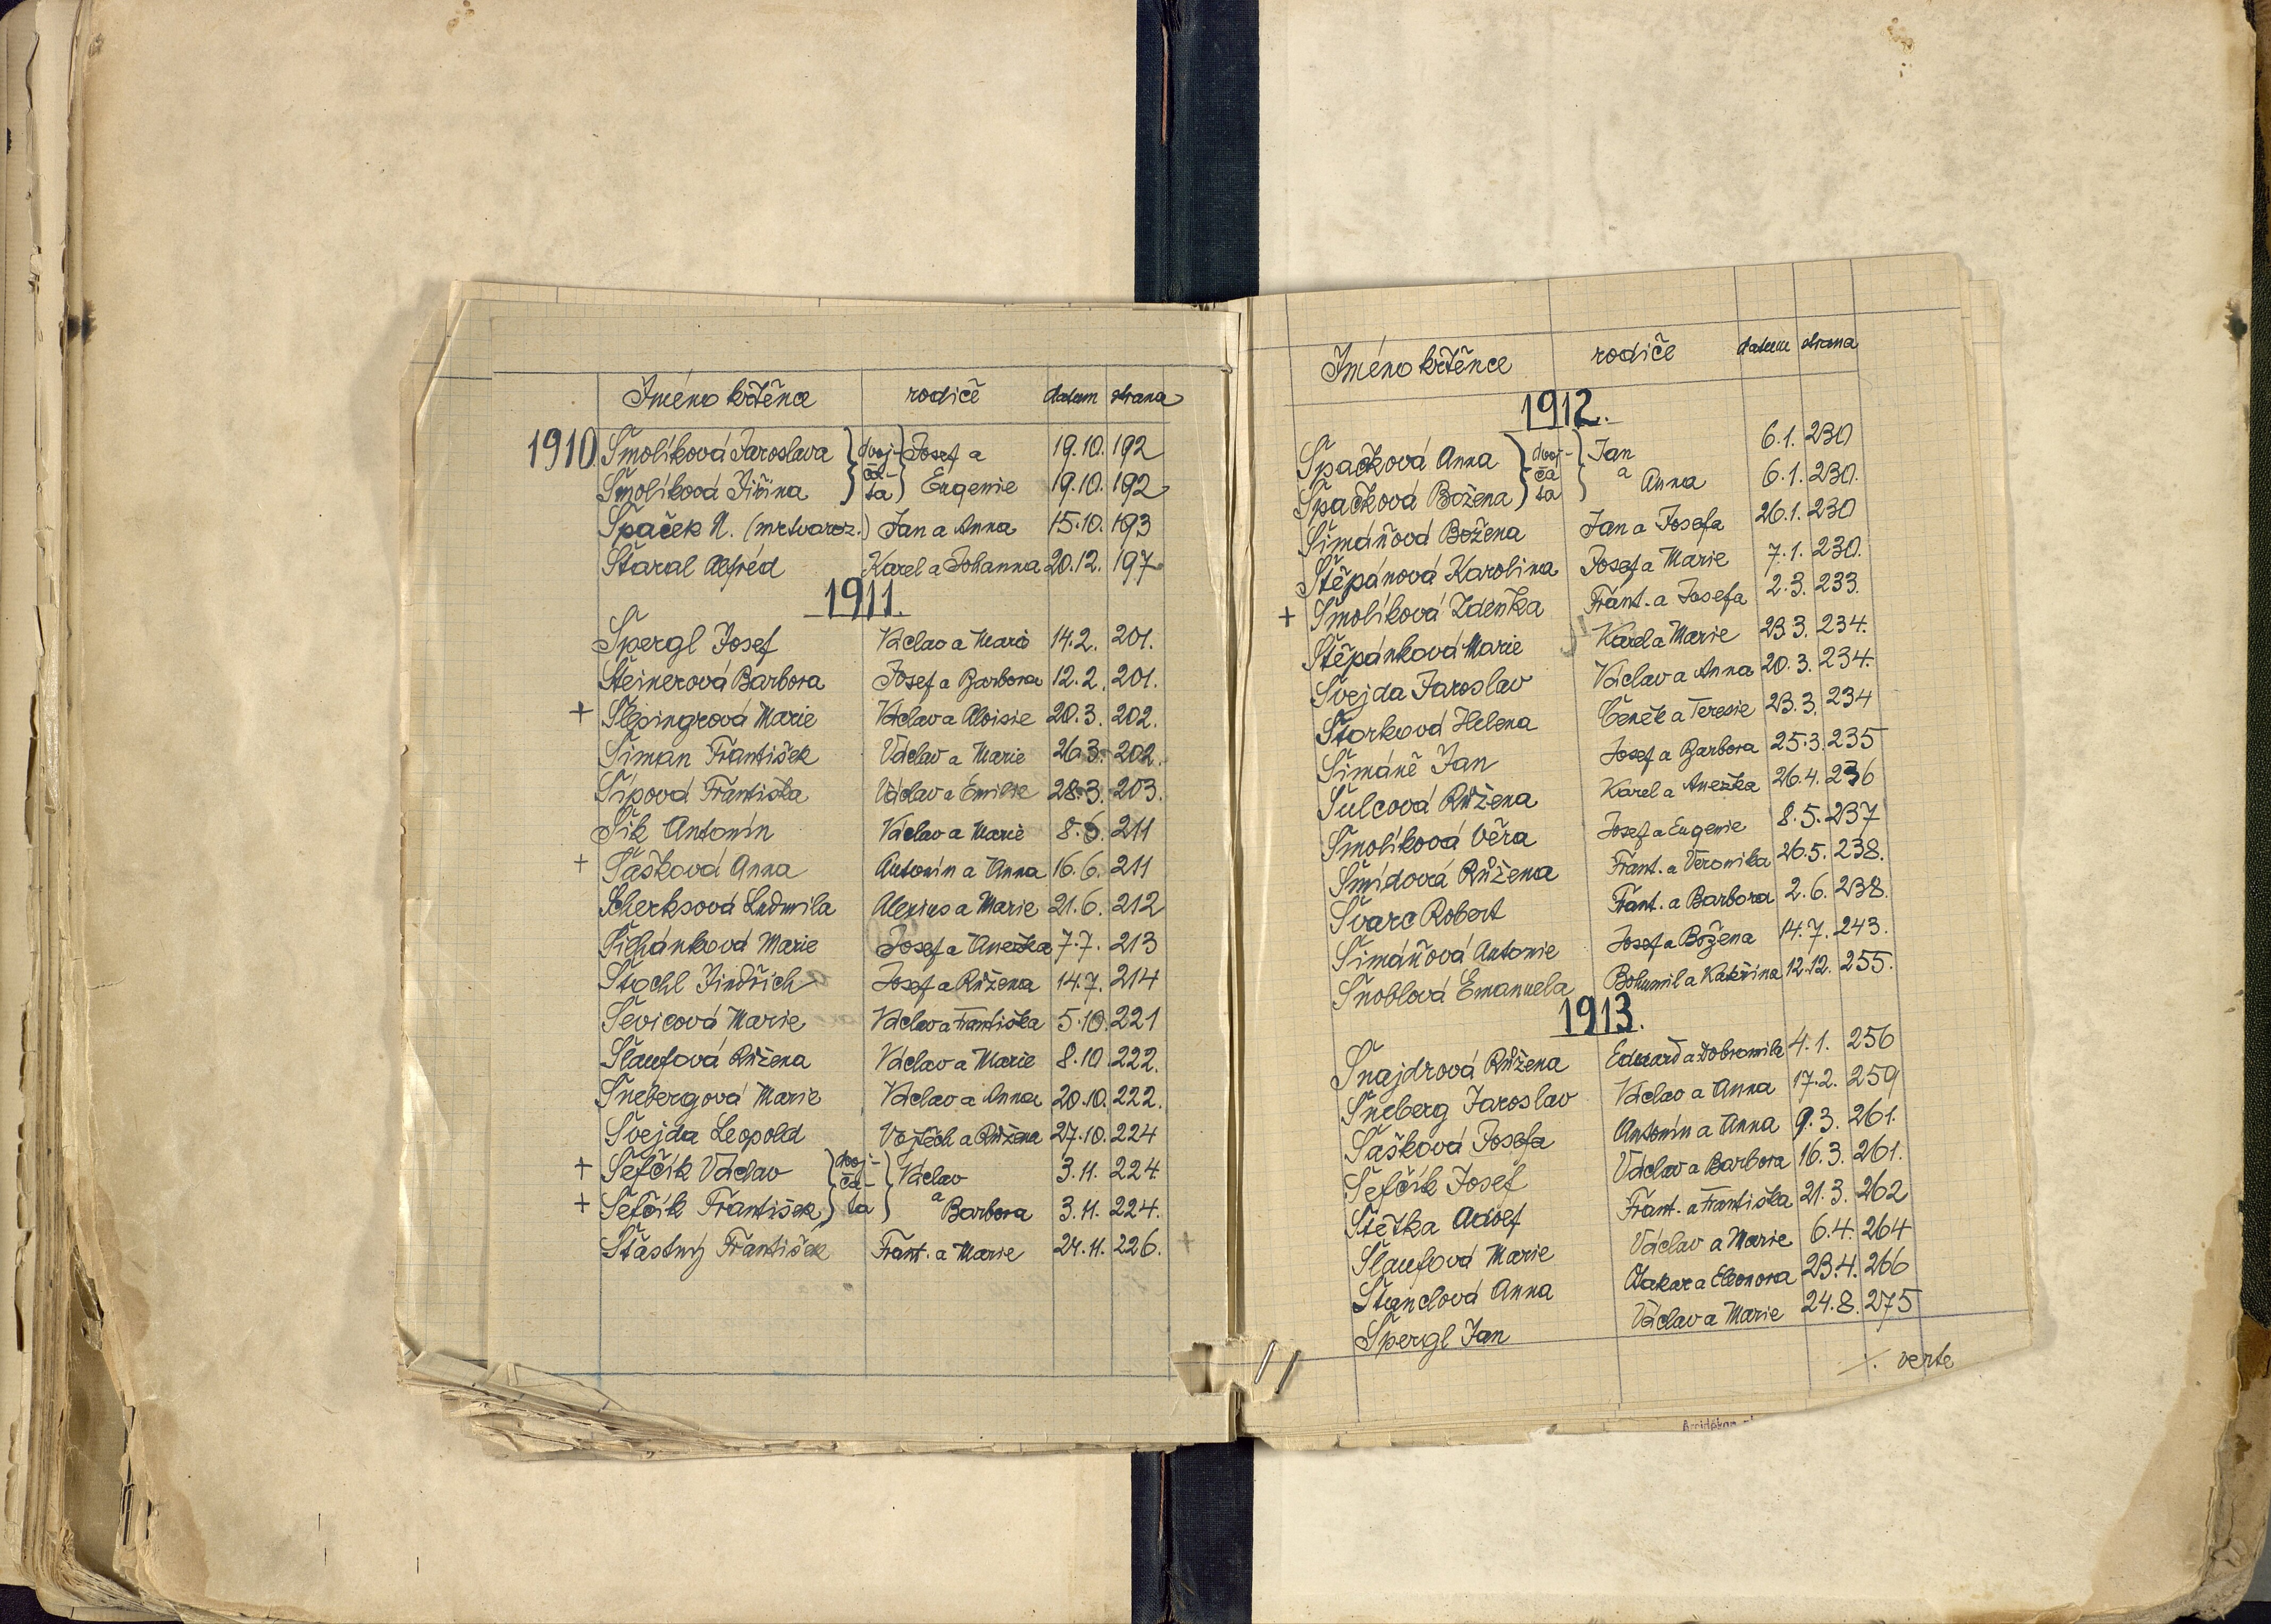 Jméno křtěnce rodiče datum strana
1910 Šmolíková Jaroslava } dvoj- } Josef a 19.10. 192
Šmolíková Jiřina } ča- ta } Eugenie 19.10. 192
Špaček N. (mrtvoroz.) Jan a Anna 15.10. 193
Štaral Alfréd Karel a Johanna 20.12. 197
1911.
Špergl Josef Václav a Marie 14.2. 201.
Šteinerová Barbora Josef a Barbora 12.2. 201.
+ Šlesingrová Marie Václav a Aloisie 20.3. 202.
Šiman František Václav a Marie 26.3. 202.
Šípová Františka Václav a Emilie 28.3. 203.
Šik Antonín Václav a Marie 8.6. 211
+ Šašková Anna Antonín a Anna 16.6. 211
Scherksová Ludmila Alexius a Marie 21.6. 212
Šichánková Marie Josef a Anežka 7.7. 213
Štochl Jindřich Josef a Růžena 14.7. 214
Ševicová Marie Václav a Františka 5.10. 221
Šlaufová Růžena Václav a Marie 8.10 222.
Šnebergová Marie Václav a Anna 20.10. 222.
Švejda Leopold Vojtěch a Růžena 27.10. 224
+ Šefčík Václav } dvoj- } Václav 3.11. 224.
+ Šefčík František } ča- ta } a Barbora 3.11. 224.
Šťastný František Frant. a Marie 24.11. 226. +
Jméno křtěnce rodiče datum strana
1912.
Špačková Anna } dvoj- } Jan 6.1. 230
Špačková Božena } ča ta } a Anna 6.1. 230.
Šimáňová Božena Jan a Josefa 26.1. 230
Štěpánová Karolina Josef a Marie 7.1. 230.
+ Šmolíková Zdeňka Frant. a Josefa 2.3. 233.
Štěpánková Marie Karel a Marie 23.3. 234.
Švejda Jaroslav Václav a Anna 20.3. 234.
Štorková Helena Čeněk a Teresie 23.3. 234
Šimáně Jan Josef a Barbora 25.3. 235
Šulcová Růžena Karel a Anežka 26.4. 236
Šmolíková Věra Josef a Eugenie 8.5. 237
Šmídová Růžena Frant. a Veronika 26.5. 238.
Švarc Robert Frant. a Barbora 2.6. 238.
Šimáňová Antonie Josef a Božena 14.7. 243.
Šnoblová Emanuela Bohumil a Kateřina 12.12. 255.
1913.
Šnajdrová Růžena Eduard a Dobromila 4.1. 256
Šneberg Jaroslav Václav a Anna 17.2. 259
Šašková Josefa Antonín a Anna 9.3. 261.
Šefčík Josef Václav a Barbora 16.3. 261.
Štětka Adolf Frant. a Františka 21.3. 262
Šlaufová Marie Václav a Marie 6.4. 264
Štanclová Anna Otakar a Eleonora 23.4. 266
Špergl Jan Václav a Marie 24.8. 275
./. verte